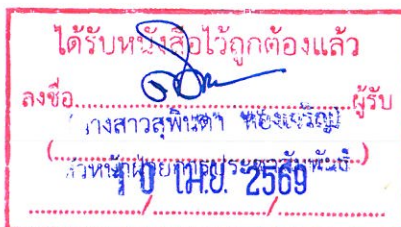 ได้รับหนังสือไว้ถูกต้องแล้ว
ลงชื่อ..........ผู้รับ
นางสาวสุพินดา
(..........)
หัวหน้าฝ่ายการประชาสัมพันธ์
10 เม.ย. 2569
........../........../..........